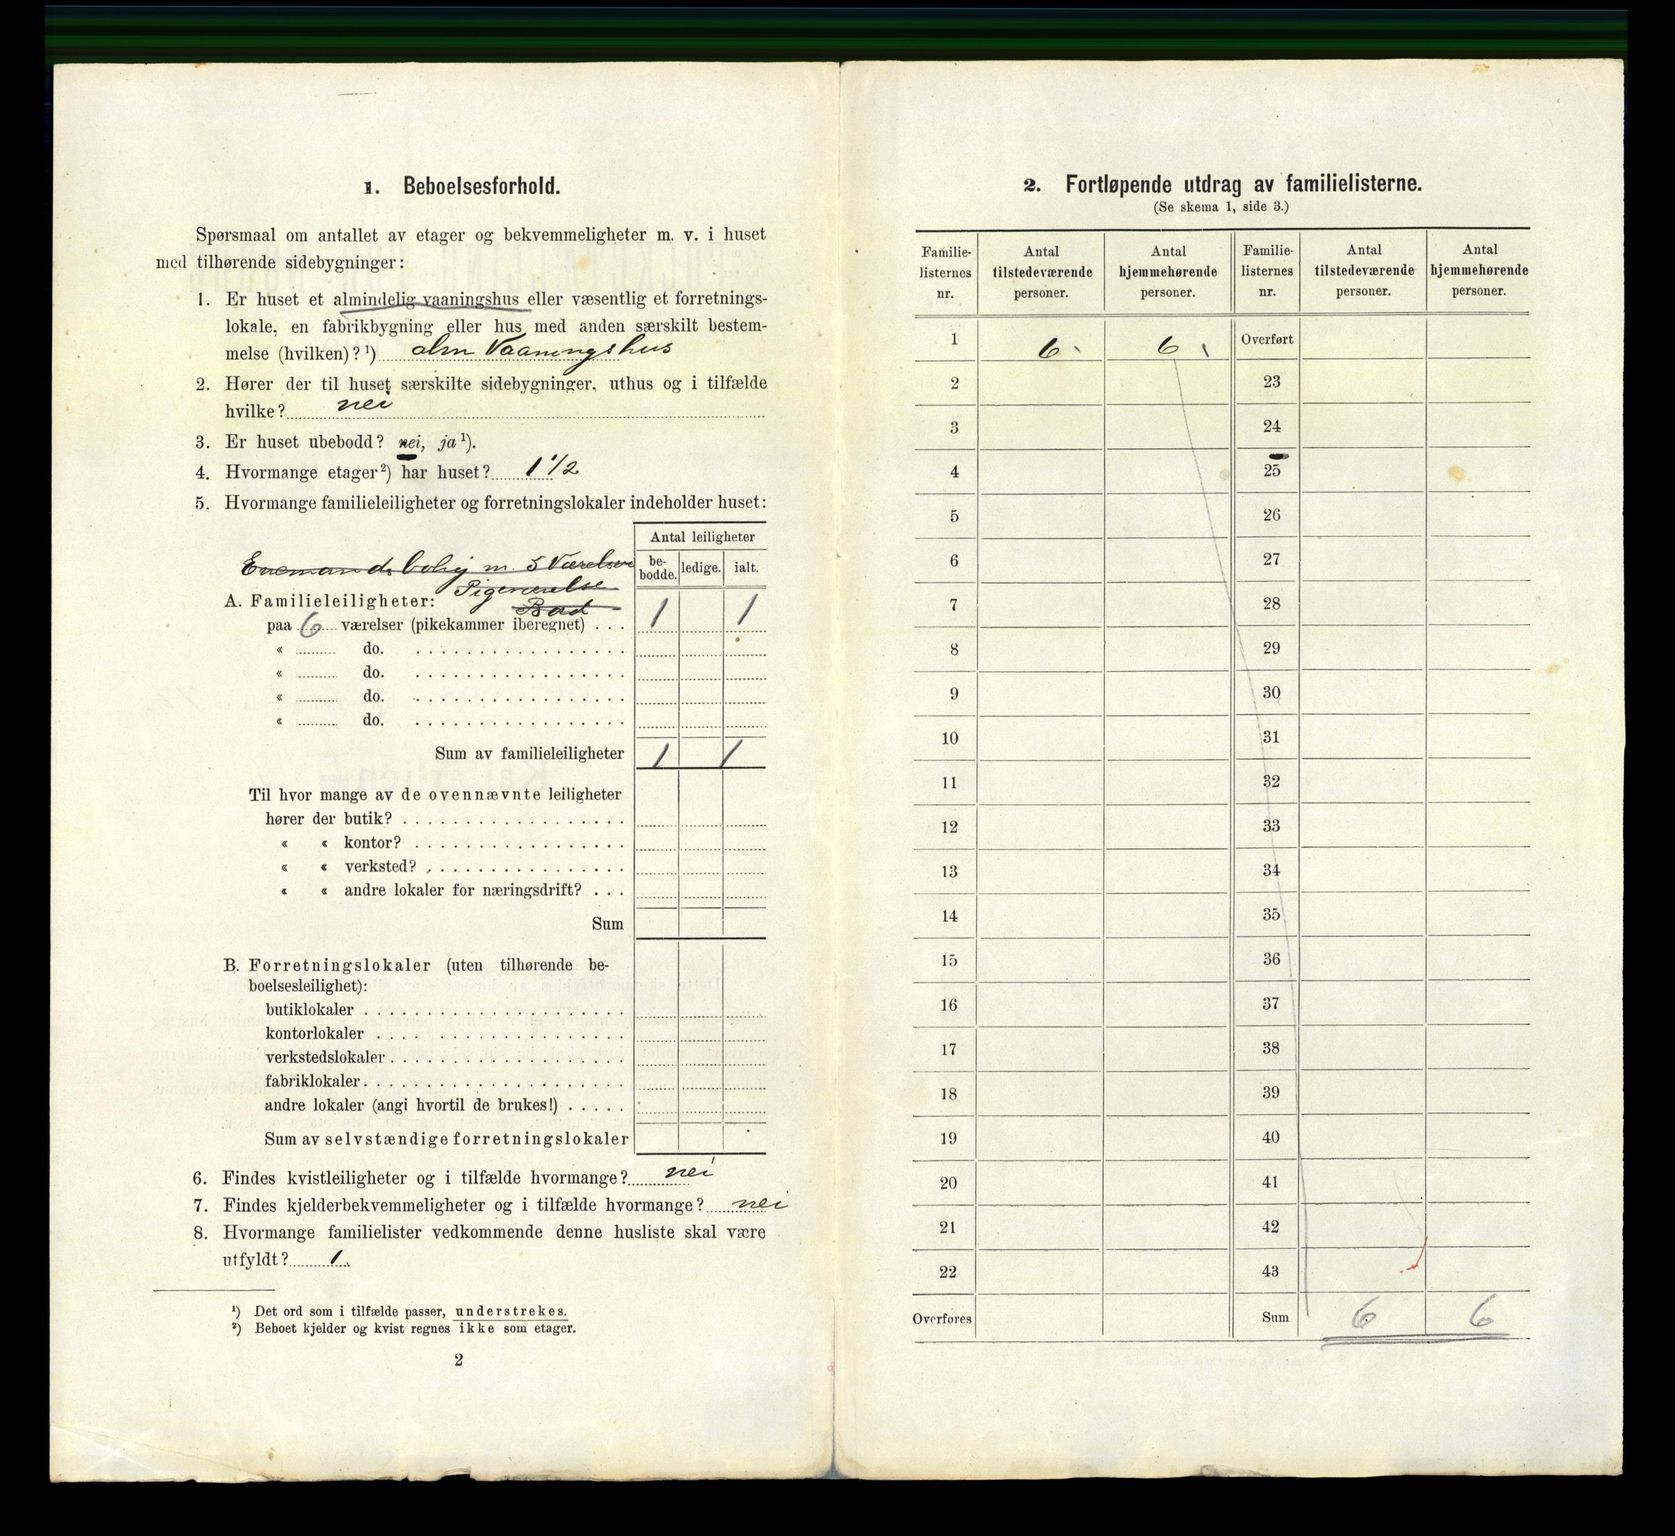 1. Beboelsesforhold.
Spørsmaal om antallet av etager og bekvemmeligheter m. v. i huset
med tilhørende sidebygninger:
1. Er huset et almindelig vaaningshus eller væsentlig et forretnings-
lokale, en fabrikbygning eller hus med anden særskilt bestem-
melse (hvilken)? ¹) alm Vaaningshus
2. Hører der til huset særskilte sidebygninger, uthus og i tilfælde
hvilke? nei
3. Er huset ubebodd? nei, ja ¹).
4. Hvormange etager ²) har huset? 1 1/2
5. Hvormange familieleiligheter og forretningslokaler indeholder huset:
Antal leiligheter
be-bodde. ledige. ialt.
Enemandsbolig m. 5 Værelser
Pigeværelse
Bad
A. Familieleiligheter:
paa 6 værelser (pikekammer iberegnet) . . . 1 1
« do.
« do.
« do.
« do.
Sum av familieleiligheter 1 1
Til hvor mange av de ovennævnte leiligheter
hører der butik?
« « kontor?
« « verksted?
« « andre lokaler for næringsdrift?
Sum
B. Forretningslokaler (uten tilhørende be-
boelsesleilighet):
butiklokaler
kontorlokaler
verkstedslokaler
fabriklokaler
andre lokaler (angi hvortil de brukes!)
Sum av selvstændige forretningslokaler
6. Findes kvistleiligheter og i tilfælde hvormange? nei
7. Findes kjelderbekvemmeligheter og i tilfælde hvormange? nei
8. Hvormange familielister vedkommende denne husliste skal være
utfyldt? 1.
¹) Det ord som i tilfælde passer, understrekes.
²) Beboet kjelder og kvist regnes ikke som etager.
2
2. Fortløpende utdrag av familielisterne.
(Se skema 1, side 3.)
Familie- Antal Antal Familie- Antal Antal
listernes tilstedeværende hjemmehørende listernes tilstedeværende hjemmehørende
nr. personer. personer. nr. personer. personer.
1 6 6 Overført
2 23
3 24
4 25
5 26
6 27
7 28
8 29
9 30
10 31
11 32
12 33
13 34
14 35
15 36
16 37
17 38
18 39
19 40
20 41
21 42
22 43
Overføres Sum 6 6